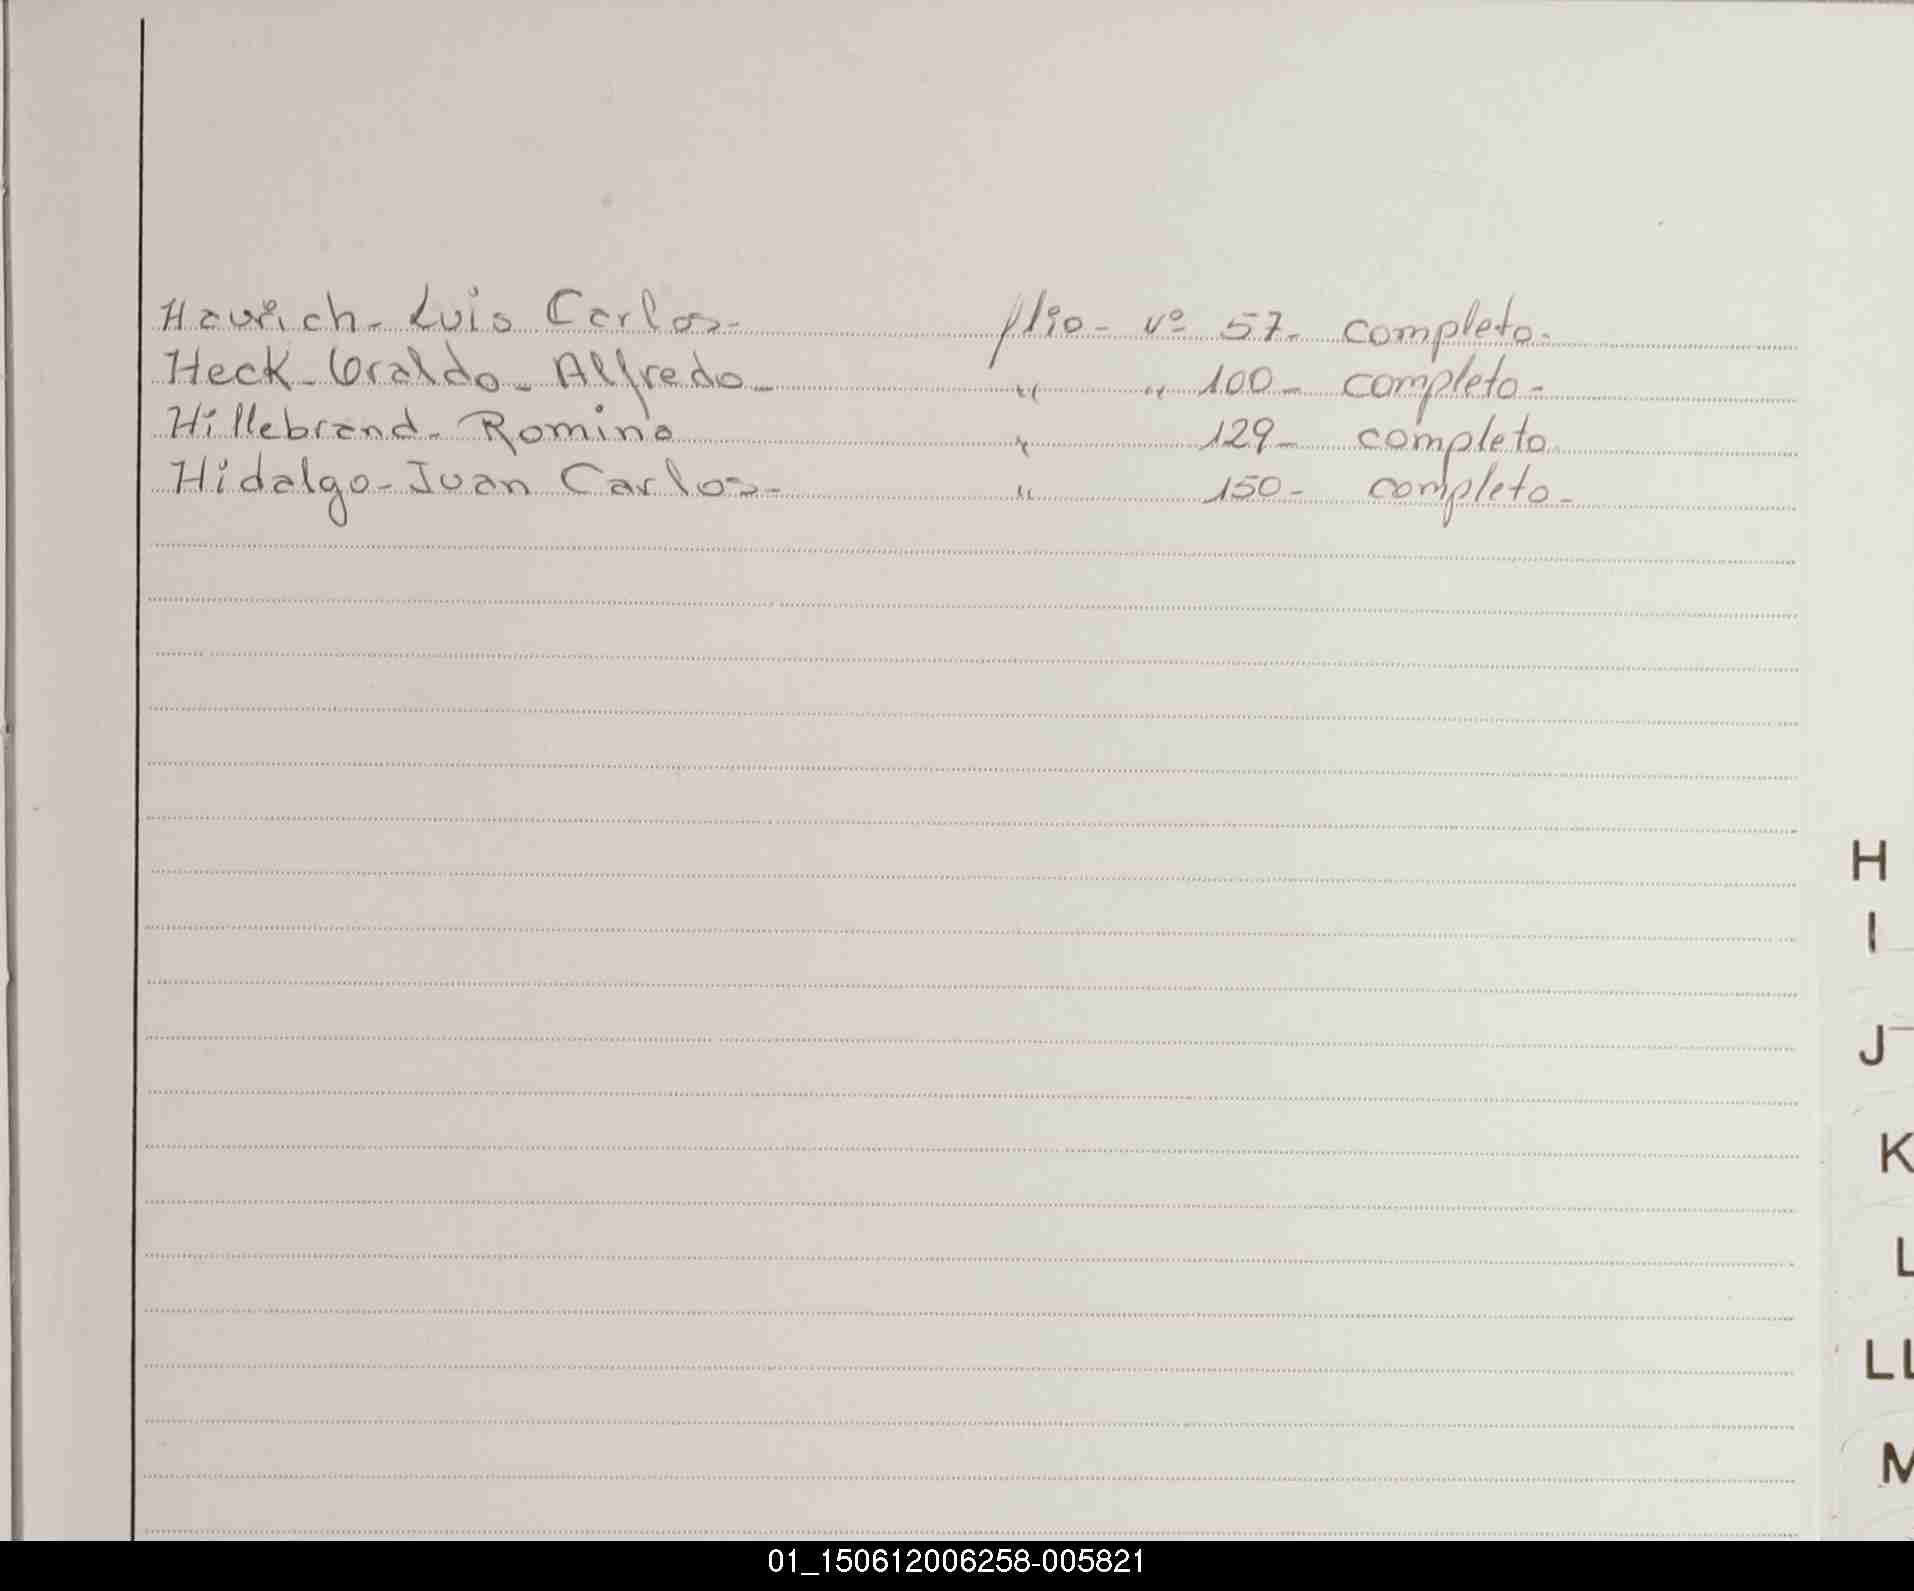 Havrich - Luis Carlos - flio - nº 57 - completo -
Heck - Oraldo - Alfredo - " " 100 - completo -
Hillebrand - Romino " 129 - completo
Hidalgo - Juan Carlos - " 150 - completo -
H
I
J
K
L
LL
M
01_150612006258-005821